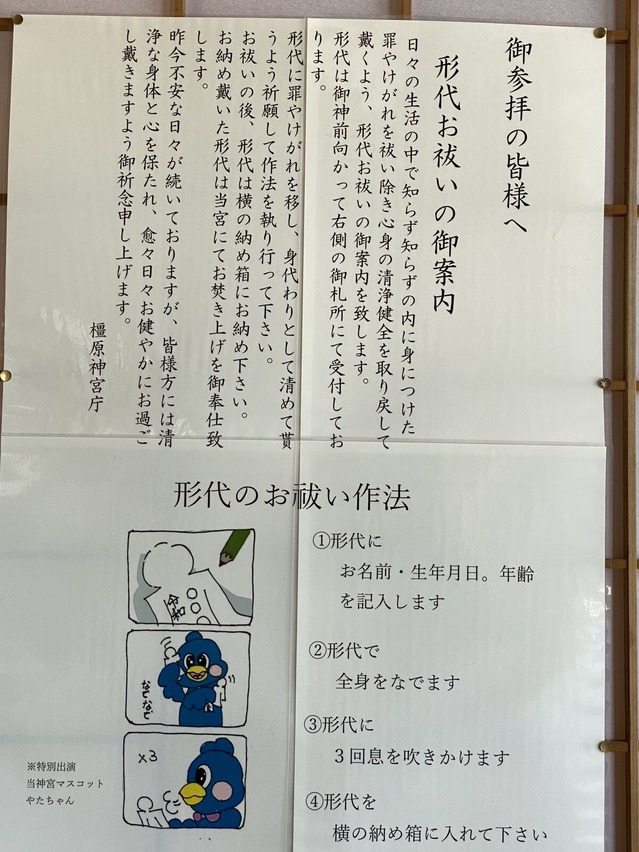 御参拝の皆様へ
形代お祓いの御案内
日々の生活の中で知らず知らずの内に身につけた
罪やけがれを祓い除き心身の清浄健全を取り戻して
戴くよう、形代お祓いの御案内を致します。
形代は御神前向かって右側の御札所にて受付してお
ります。
形代に罪やけがれを移し、身代わりとして清めて貰
うよう祈願して作法を執り行って下さい。
お祓いの後、形代は横の納め箱にお納め下さい。
お納め戴いた形代は当宮にてお焚き上げを御奉仕致
します。
昨今不安な日々が続いておりますが、皆様方には清
浄な身体と心を保たれ、愈々日々お健やかにお過ご
し戴きますよう御祈念申し上げます。
橿原神宮庁
形代のお祓い作法
①形代に
お名前・生年月日。年齢
を記入します
②形代で
全身をなでます
③形代に
３回息を吹きかけます
④形代を
横の納め箱に入れて下さい
令和
なでなで
x3
※特別出演
当神宮マスコット
やたちゃん